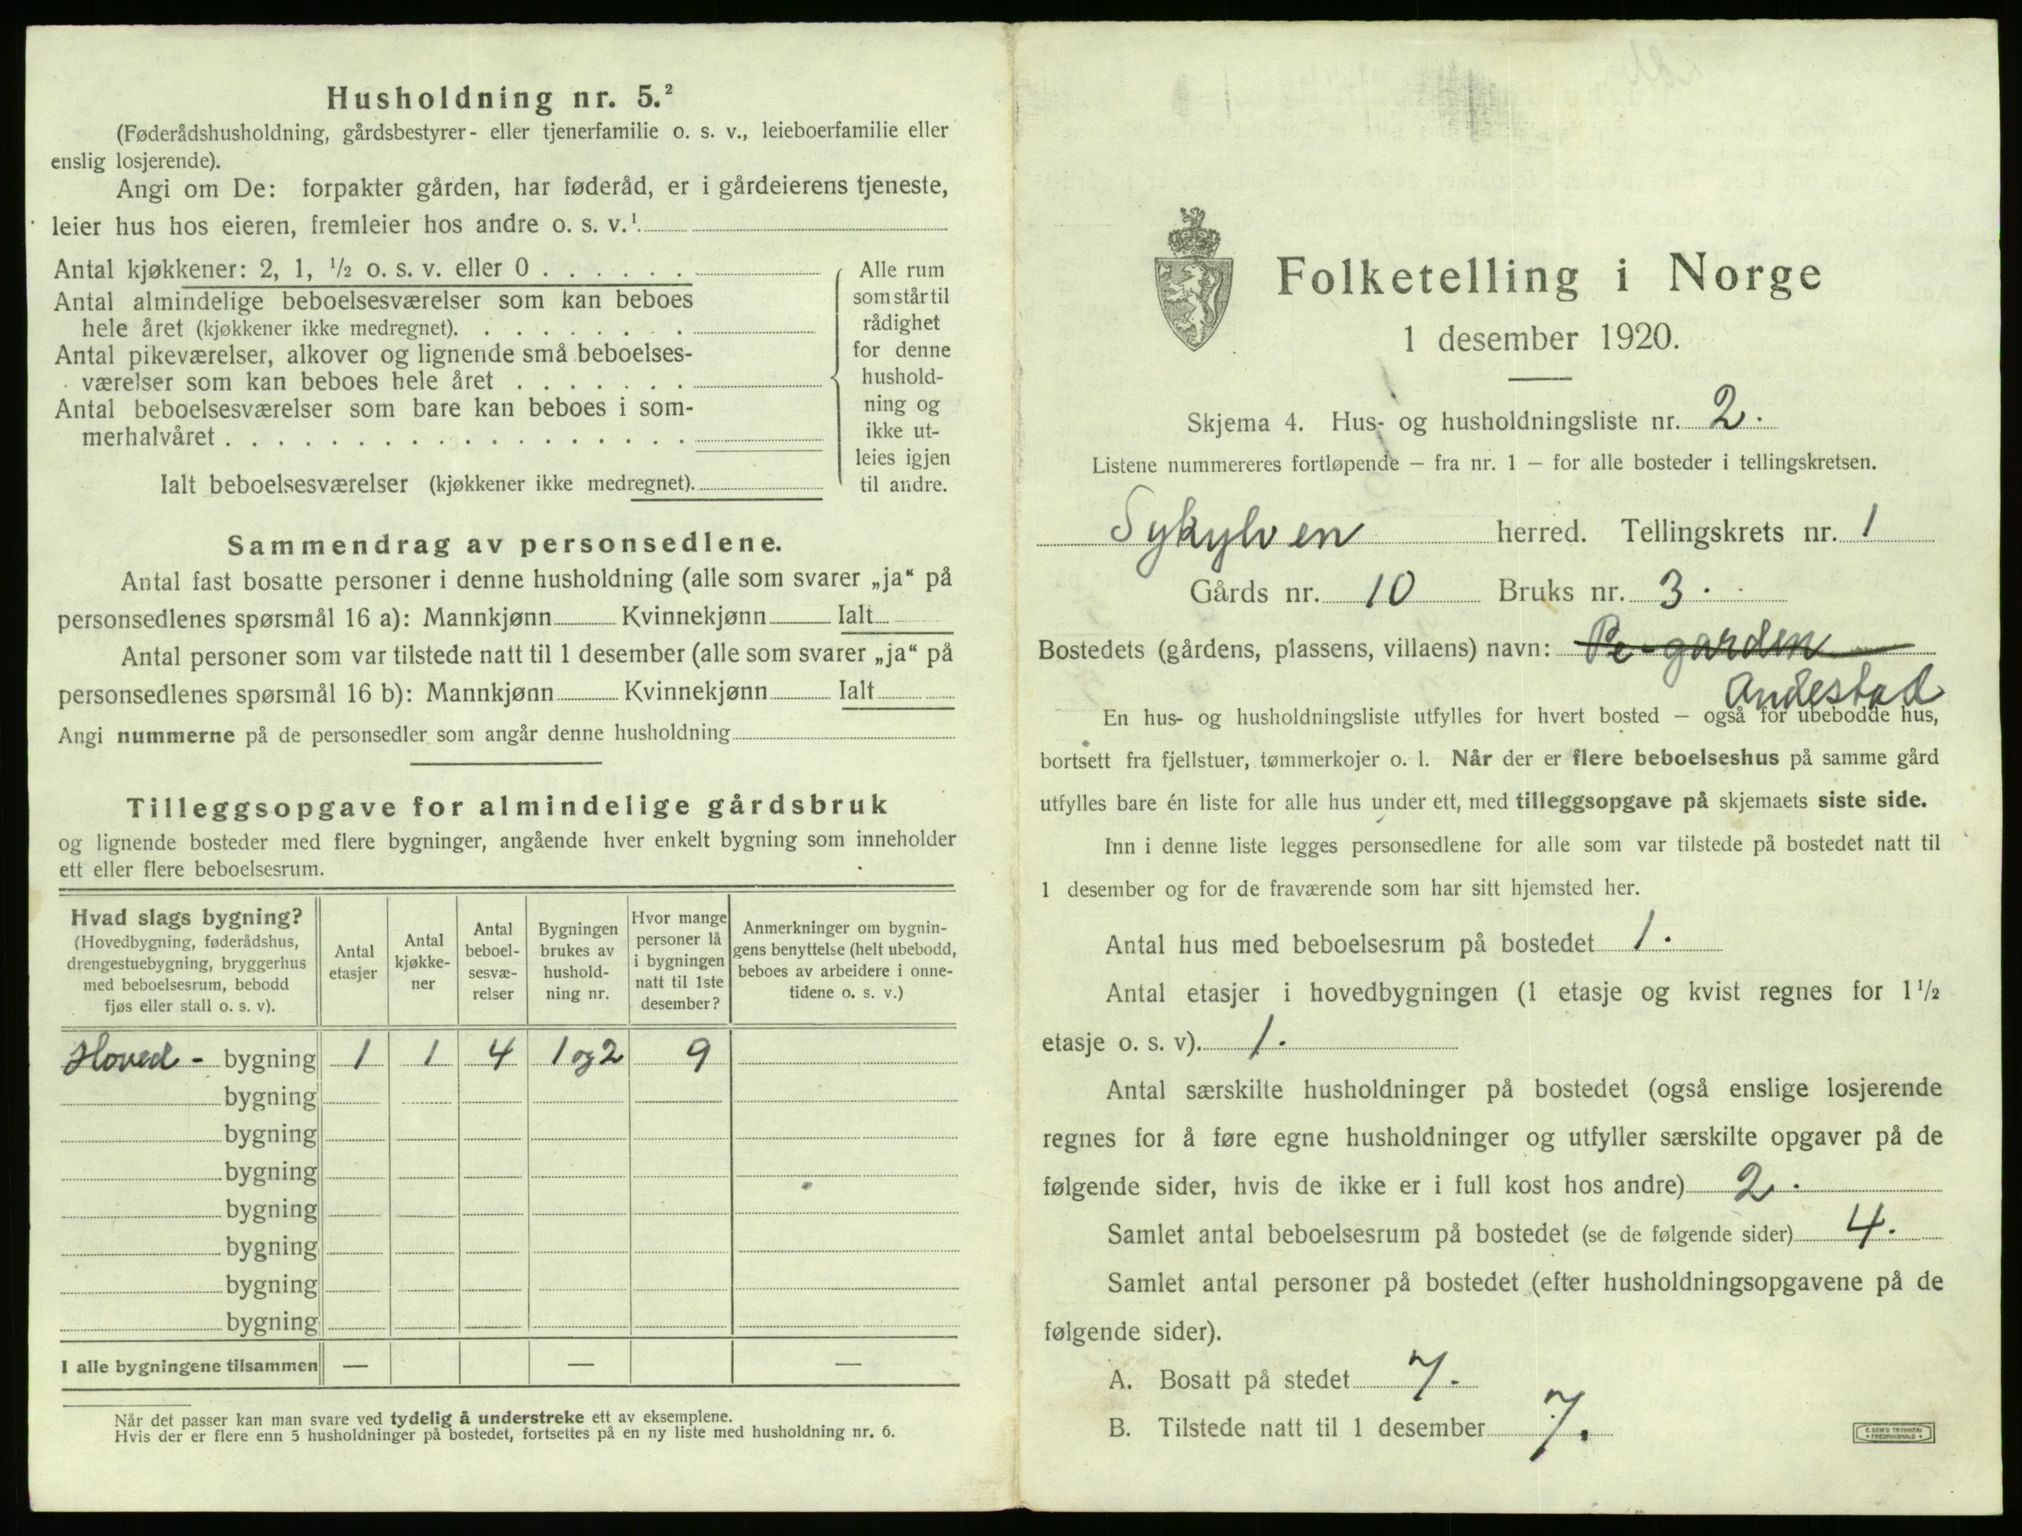 Husholdning nr. 5.²
(Føderådshusholdning, gårdsbestyrer- eller tjenerfamilie o. s. v., leieboerfamilie eller
enslig losjerende).
Angi om De: forpakter gården, har føderåd, er i gårdeierens tjeneste,
leier hus hos eieren, fremleier hos andre o. s. v.¹
Antal kjøkkener: 2, 1, ½ o. s. v. eller 0 . . . . . .
Antal almindelige beboelsesværelser som kan beboes
hele året (kjøkkener ikke medregnet). . . . . . . . .
Antal pikeværelser, alkover og lignende små beboelses-
værelser som kan beboes hele året . . . . . . .
Antal beboelsesværelser som bare kan beboes i som-
merhalvåret . . . . . . . . . . . . . . . . . .
Ialt beboelsesværelser (kjøkkener ikke medregnet).
Alle rum
som står til
rådighet
for denne
hushold-
ning og
ikke ut-
leies igjen
til andre.
Sammendrag av personsedlene.
Antal fast bosatte personer i denne husholdning (alle som svarer „ja“ på
personsedlenes spørsmål 16 a): Mannkjønn Kvinnekjønn Ialt
Antal personer som var tilstede natt til 1 desember (alle som svarer „ja“ på
personsedlenes spørsmål 16 b): Mannkjønn Kvinnekjønn Ialt
Angi nummerne på de personsedler som angår denne husholdning
Tilleggsopgave for almindelige gårdsbruk
og lignende bosteder med flere bygninger, angående hver enkelt bygning som inneholder
ett eller flere beboelsesrum.
Hvad slags bygning?
(Hovedbygning, føderådshus,
drengestuebygning, bryggerhus
med beboelsesrum, bebodd
fjøs eller stall o. s. v).
Antal
etasjer
Antal
kjøkke-
ner
Antal
beboel-
sesvæ-
relser
Bygningen
brukes av
hushold-
ning nr.
Hvor mange
personer lå
i bygningen
natt til 1ste
desember?
Anmerkninger om bygnin-
gens benyttelse (helt ubebodd,
beboes av arbeidere i onne-
tidene o. s. v.)
Hoved - bygning 1 1 4 1 og 2 9
bygning
bygning
bygning
bygning
bygning
bygning
bygning
I alle bygningene tilsammen — — —
Når det passer kan man svare ved tydelig å understreke ett av eksemplene.
Hvis der er flere enn 5 husholdninger på bostedet, fortsettes på en ny liste med husholdning nr. 6.
Folketelling i Norge
1 desember 1920.
Skjema 4. Hus- og husholdningsliste nr. 2.
Listene nummereres fortløpende — fra nr. 1 — for alle bosteder i tellingskretsen.
Sykylven herred. Tellingskrets nr. 1
Gårds nr. 10 Bruks nr. 3.
Bostedets (gårdens, plassens, villaens) navn: Pe-garden
Andestad
En hus- og husholdningsliste utfylles for hvert bosted — også for ubebodde hus,
bortsett fra fjellstuer, tømmerkojer o. l. Når der er flere beboelseshus på samme gård
utfylles bare én liste for alle hus under ett, med tilleggsopgave på skjemaets siste side.
Inn i denne liste legges personsedlene for alle som var tilstede på bostedet natt til
1 desember og for de fraværende som har sitt hjemsted her.
Antal hus med beboelsesrum på bostedet 1.
Antal etasjer i hovedbygningen (1 etasje og kvist regnes for 1½
etasje o. s. v). 1.
Antal særskilte husholdninger på bostedet (også enslige losjerende
regnes for å føre egne husholdninger og utfyller særskilte opgaver på de
følgende sider, hvis de ikke er i full kost hos andre) 2.
Samlet antal beboelsesrum på bostedet (se de følgende sider) 4.
Samlet antal personer på bostedet (efter husholdningsopgavene på de
følgende sider).
A. Bosatt på stedet 7.
B. Tilstede natt til 1 desember 7.
E. SEM'S TRYKKERI
FREDRIKSHALD